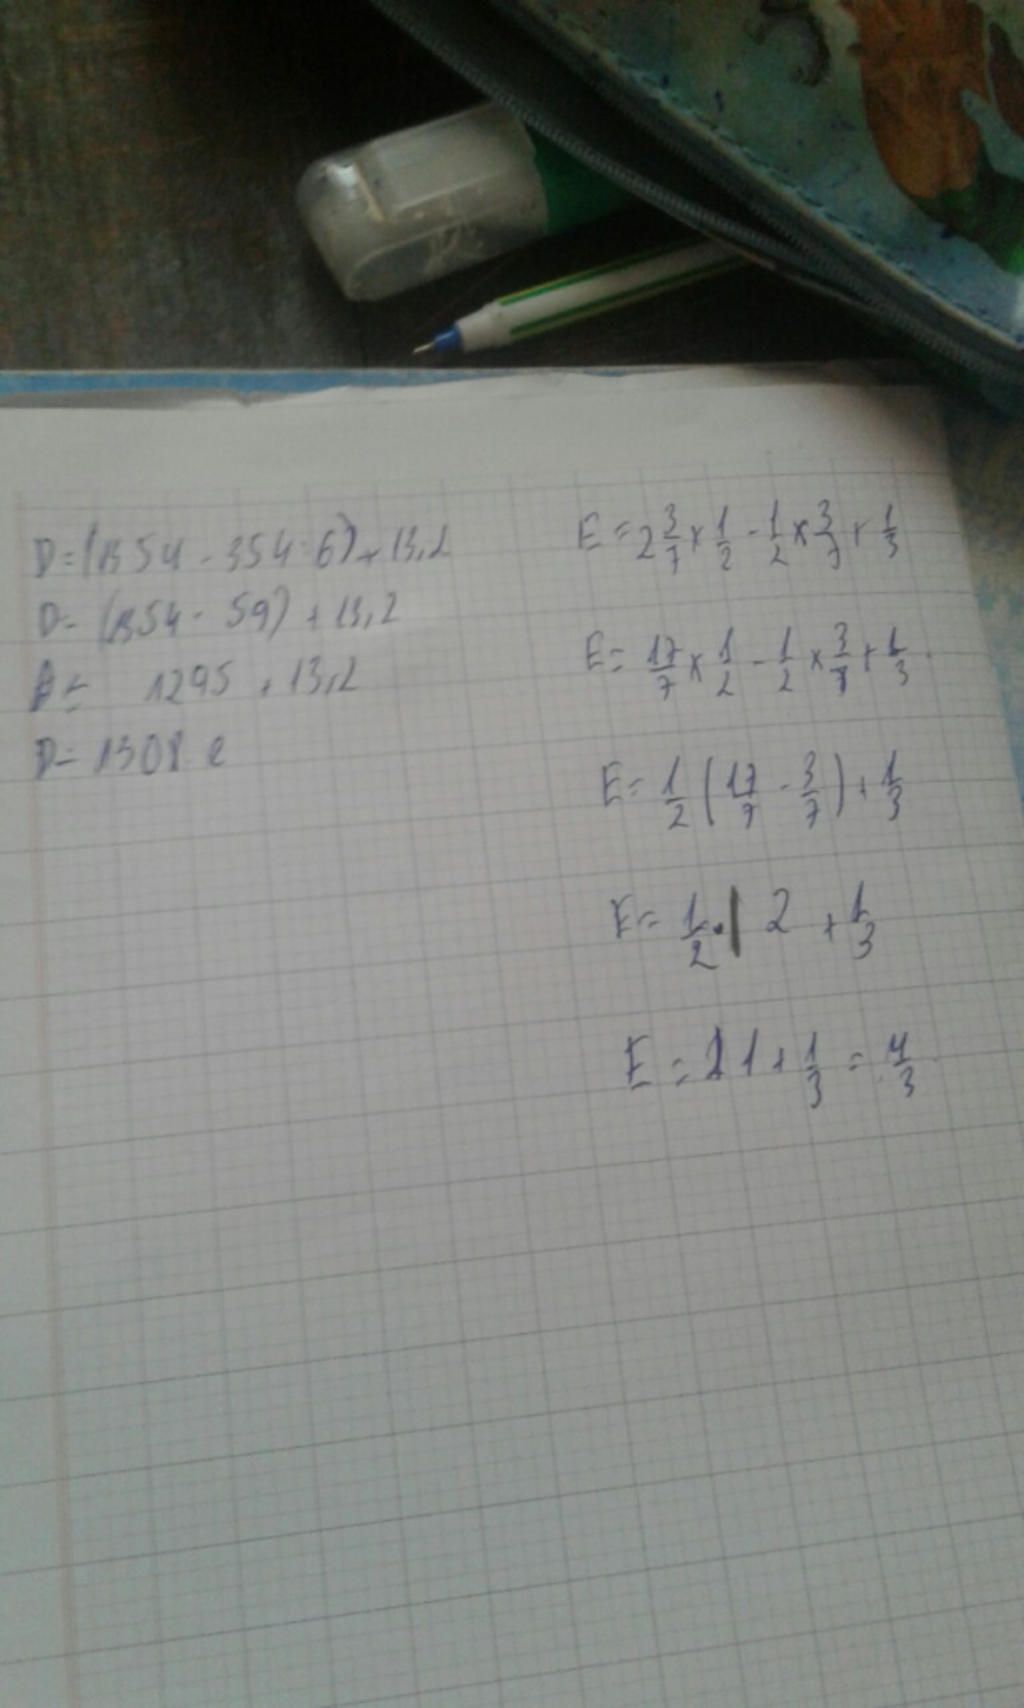 D=(1354-354:6)+13,2
D=(1354-59)+13,2
D= 1295+13,2
D=1308 2
E=2 3/7×1/2-1/2×3/7+1/3
E=17/7×1/2-1/2×3/7+1/3
E=1/2(17/7-3/7)+1/3
E=1/2. 2+1/3
E=1+1/3=4/3